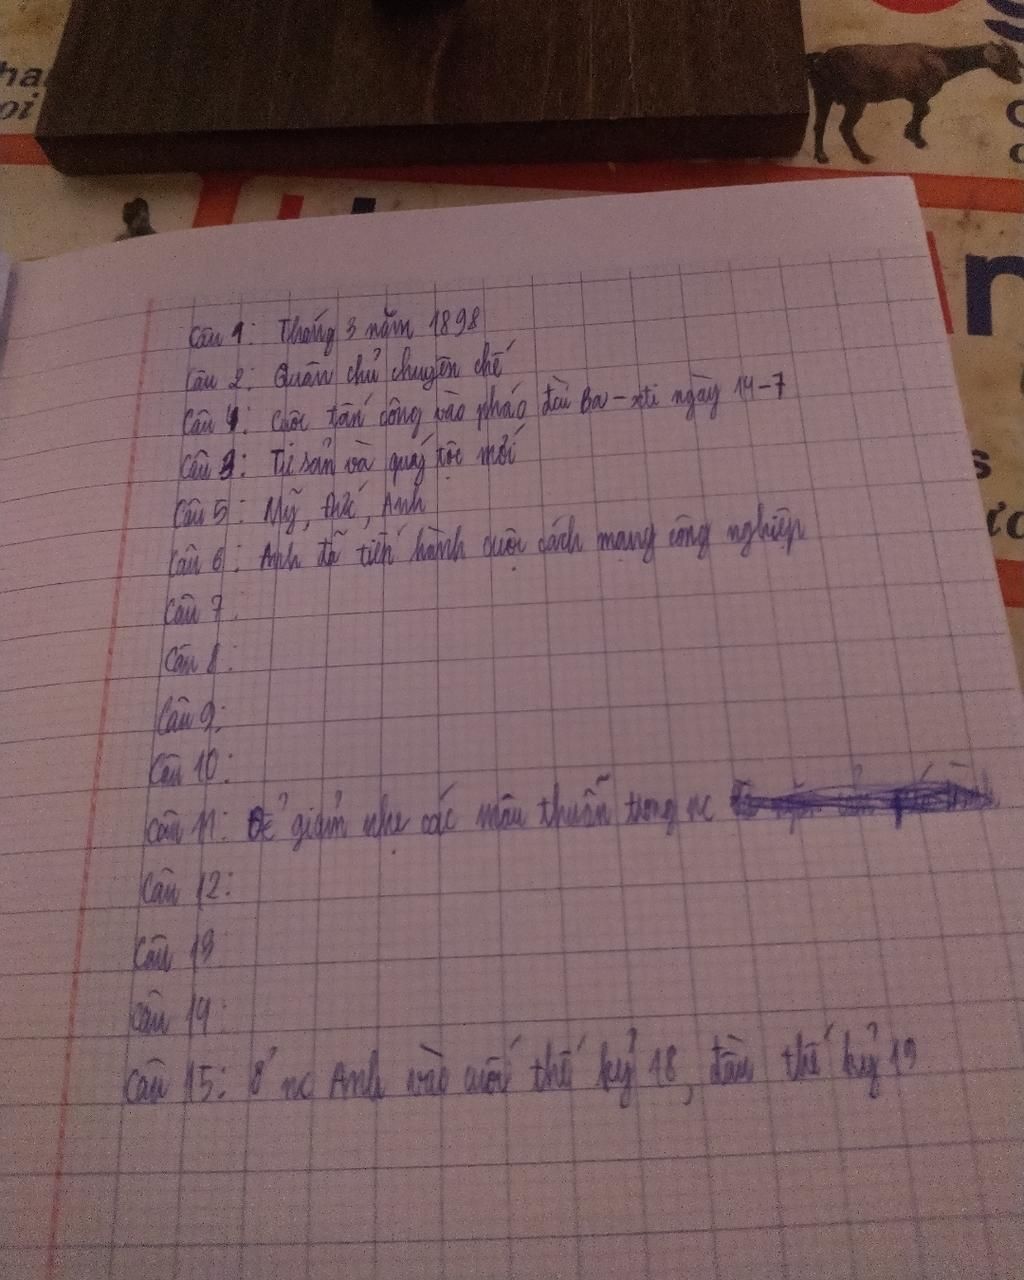 Câu 1: Tháng 3 năm 1898
Câu 2: Quân chủ chuyên chế
Câu 4: Cuộc tấn công vào pháo đài Ba-xti ngày 14-7
Câu 3: Tư sản và quý tộc mới
Câu 5: Mỹ, Đức, Anh
Câu 6: Anh đã tiến hành cuộc cách mạng công nghiệp
Câu 7:
Câu 8:
Câu 9:
Câu 10:
Câu 11: Để giảm nhẹ các mâu thuẫn trong nc
Câu 12:
Câu 13
Câu 14:
Câu 15: Ở nc Anh vào cuối thế kỷ 18, đầu thế kỷ 19